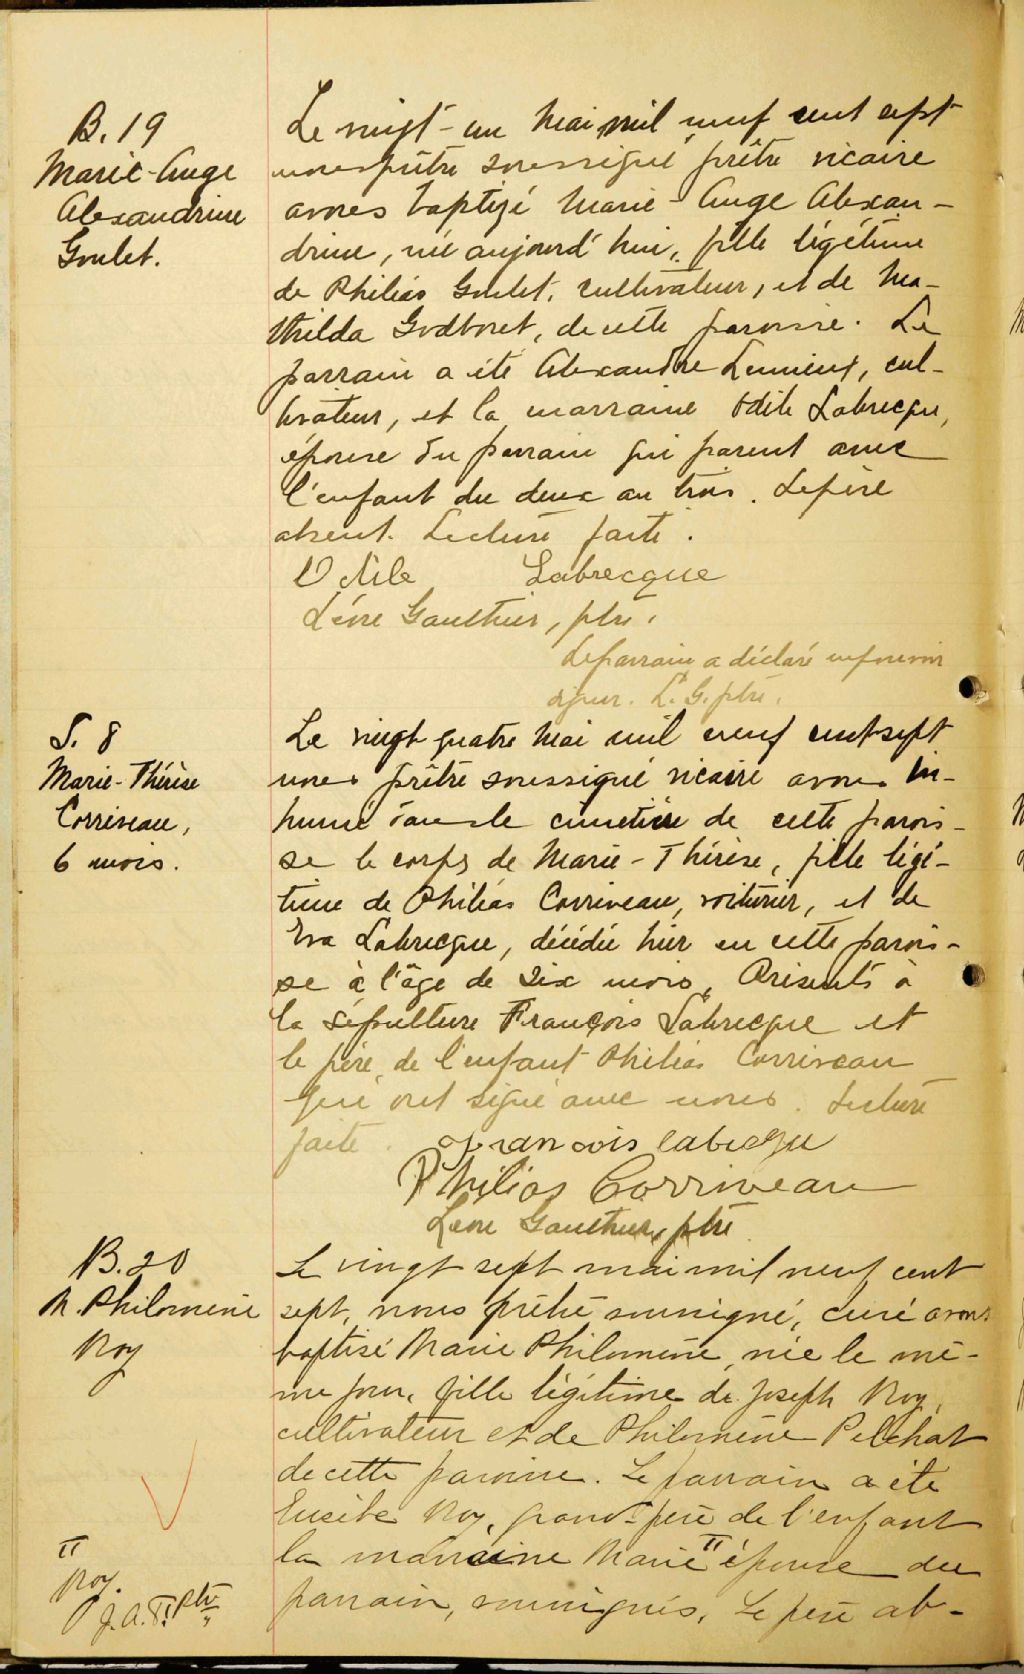 B. 19
Marie-Ange
Alexandrine
Goulet.
Le vingt-un Mai mil neuf cent sept
nous prêtre soussigné prêtre vicaire
avons baptizé Marie-Ange Alexan-
drine, née aujourd'hui, fille légitime
de Philias Goulet, cultivateur, et de Ma-
thilda Godbout, de cette paroisse. Le
parrain a été Alexandre Lemieux, cul-
tivateur, et la marraine Odile Labrecque,
épouse du parrain qui parent avec
l'enfant du deux au trois. Le père
absent. Lecture faite.
Odile Labrecque
Léon Gauthier, ptre.
Le parrain a déclaré ne pouvoir
signer. L. G. ptre.
S. 8
Marie-Thérèse
Corriveau,
6 mois.
Le vingt quatre Mai mil neuf cent sept
nous prêtre soussigné vicaire avons in-
humé dans le cimetière de cette parois-
se le corps de Marie-Thérèse, fille légi-
time de Philias Corriveau, voiturier, et de
Eva Labrecque, décédée hier en cette parois-
se à l'âge de six mois. Présents à
la sépulture François Labrecque et
le père de l'enfant Philias Corriveau
qui ont signé avec nous. Lecture
faite. Francois labrequ
Philias Corriveau
Léon Gauthier, ptre
B. 20
M. Philomène
Roy
Le vingt sept mai mil neuf cent
sept, nous prêtre soussigné, curé avons
baptisé Marie Philomène, née le mê-
me jour, fille légitime de Joseph Roy,
cultivateur et de Philomène Pelchat
de cette paroisse. Le parrain a été
Eusèbe Roy, grand-père de l'enfant
la marraine Marie II épouse du
parrain, soussignés. Le père ab-
II
Roy.
J. A. Ptr